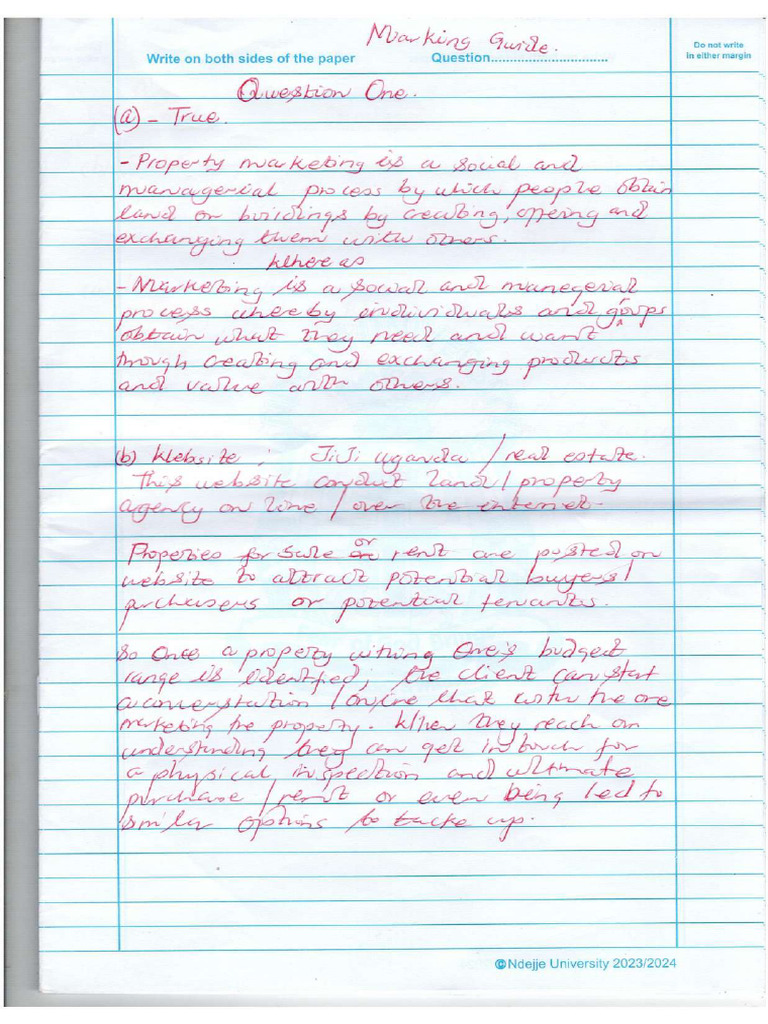 Marking Guide.
Write on both sides of the paper Question................................
Do not write
in either margin
Question One.
(a) - True.
- Property marketing is a social and
managerial process by which people obtain
land or buildings by creating, offering and
exchanging them with others.
Whereas
- Marketing is a social and manegerial
process whereby individuals and groups
obtain what they need and want
through creating and exchanging products
and value with others.
(b) Website : JiJi uganda / real estate.
This website conduct land / property
agency on line / over the internet.
Properties for sale or rent are posted on
website to attract potential buyers /
purchasers or potential tenants.
So once a property withing One's budget
range is identified, the client can start
a converstation / online chat with the one
marketing the property. When they reach an
understanding they can get in touch for
a physical inspection and ultimate
purchase / rent or even being led to
similar options to take up.
©Ndejje University 2023/2024